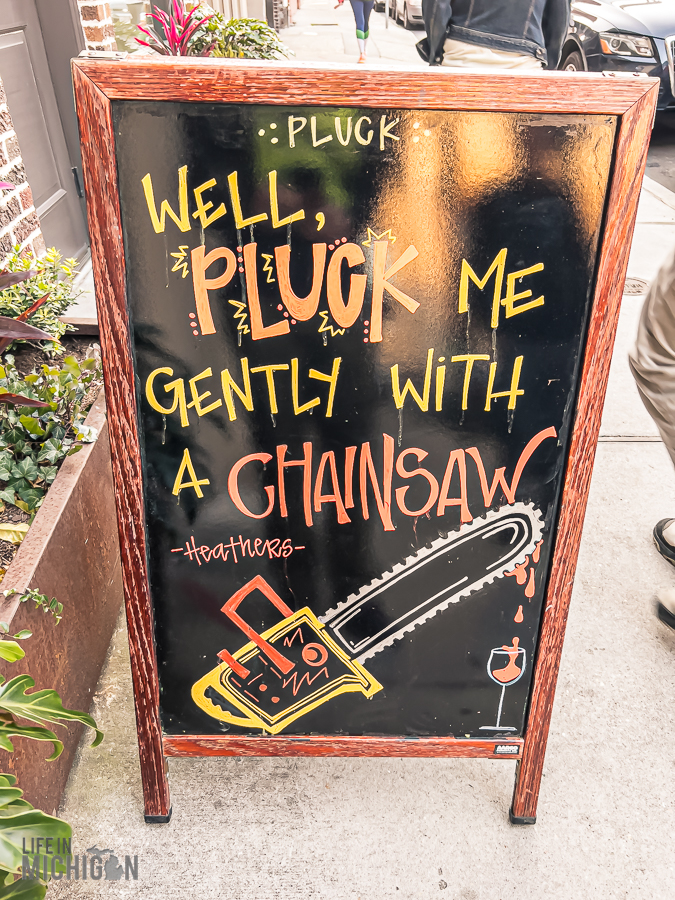 PLUCK
WELL,
PLUCK ME
GENTLY WITH
A CHAINSAW
-Heathers-
LIFE IN
MICHIGAN